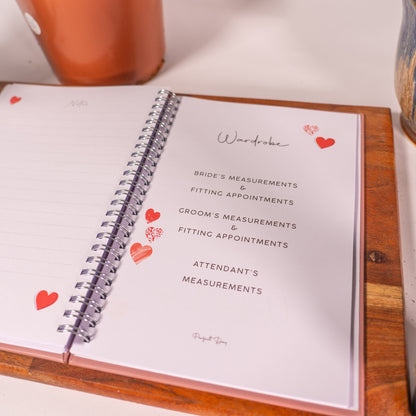 Notes
Wardrobe
BRIDE'S MEASUREMENTS
&
FITTING APPOINTMENTS
GROOM'S MEASUREMENTS
&
FITTING APPOINTMENTS
ATTENDANT'S
MEASUREMENTS
Perfect Day